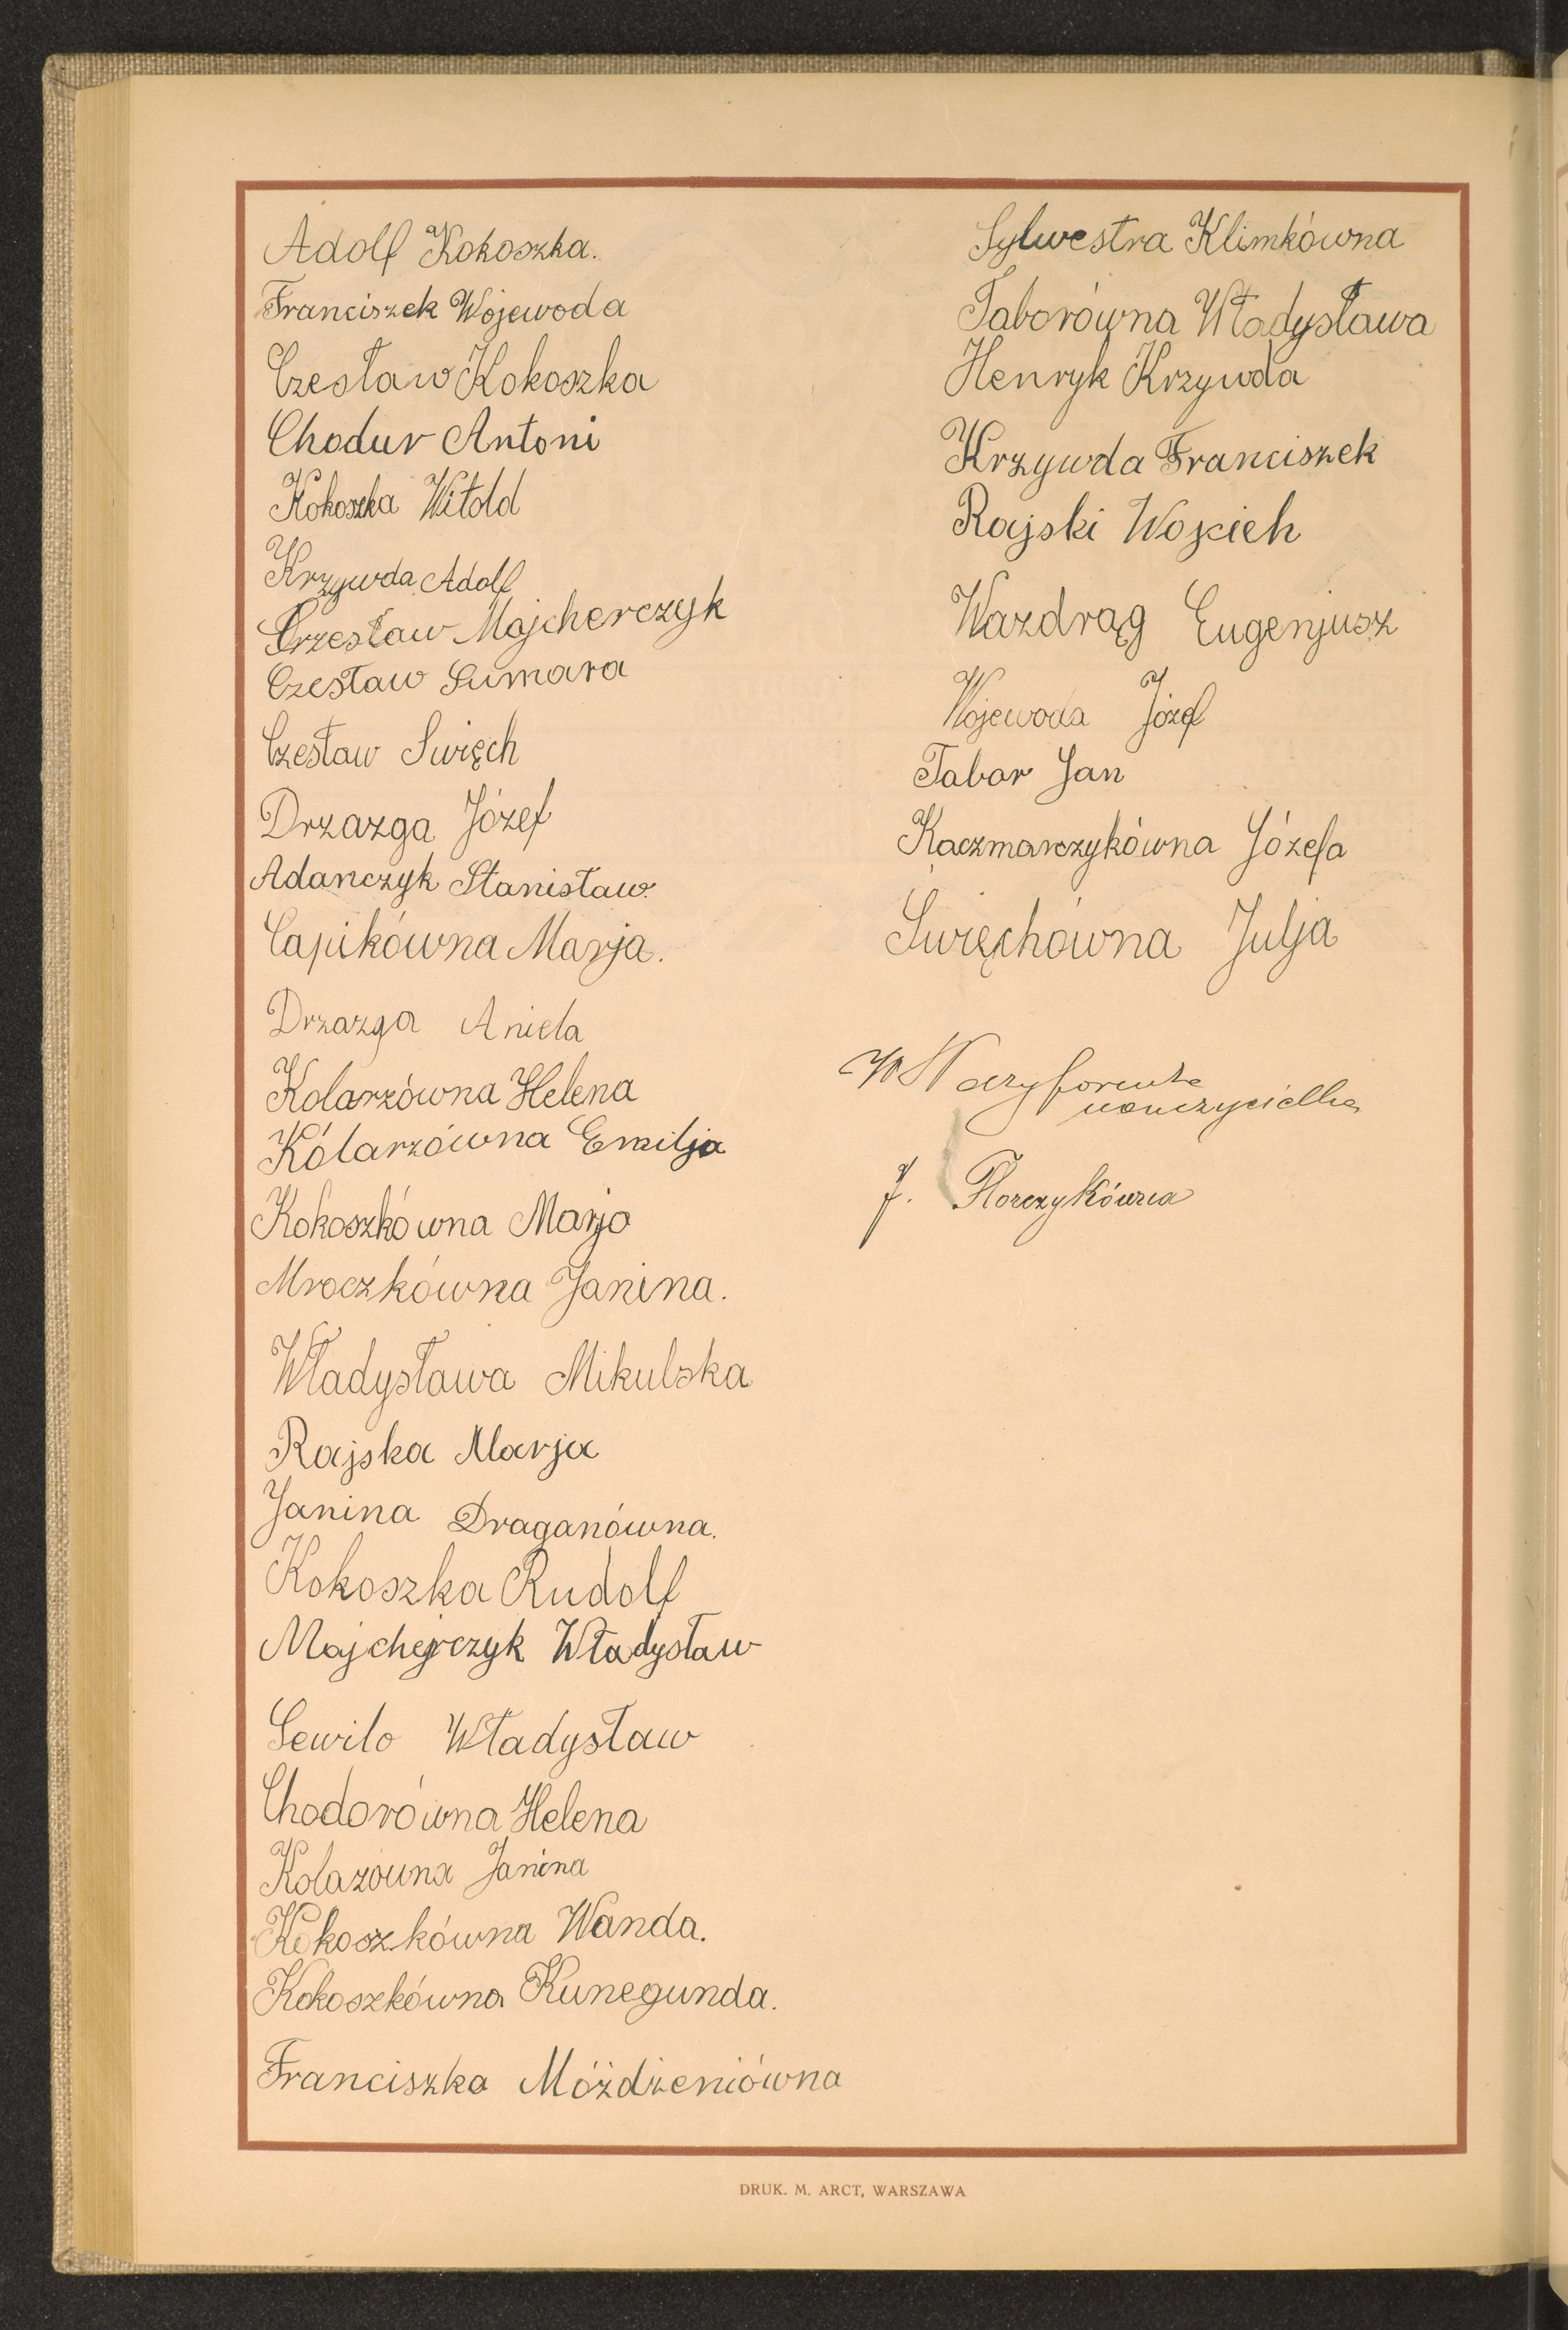 Adolf Kokoszka.
Franciszek Wojewoda
Czesław Kokoszka
Chodur Antoni
Kokoszka Witold
Krzywda Adolf
Czesław Majcherczyk
Czesław Sumara
Czesław Swięch
Drzazga Józef
Adanczyk Stanisław.
Capikówna Marja.
Drzazga Aniela
Kolarzówna Helena
Kólarzówna Emilja
Kokoszkówna Marja
Mroczkówna Janina.
Władysława Mikulska
Rajska Marja
Janina Draganówna.
Kokoszka Rudolf
Majcherczyk Władysław
Sewilo Władysław
Chodorówna Helena
Kolazówna Janina
Kokoszkówna Wanda.
Kokoszkówna Kunegunda.
Franciszka Móżdżeniówna
Sylwestra Klimkówna
Taborówna Władysława
Henryk Krzywda
Krzywda Franciszek
Rajski Wojcieh
Wazdrąg Eugenjusz
Wojewoda Józef
Tabor Jan
Kaczmarczykówna Józefa
Swięchówna Julja
nauczycielka
J. Florczykówna
DRUK. M. ARCT, WARSZAWA